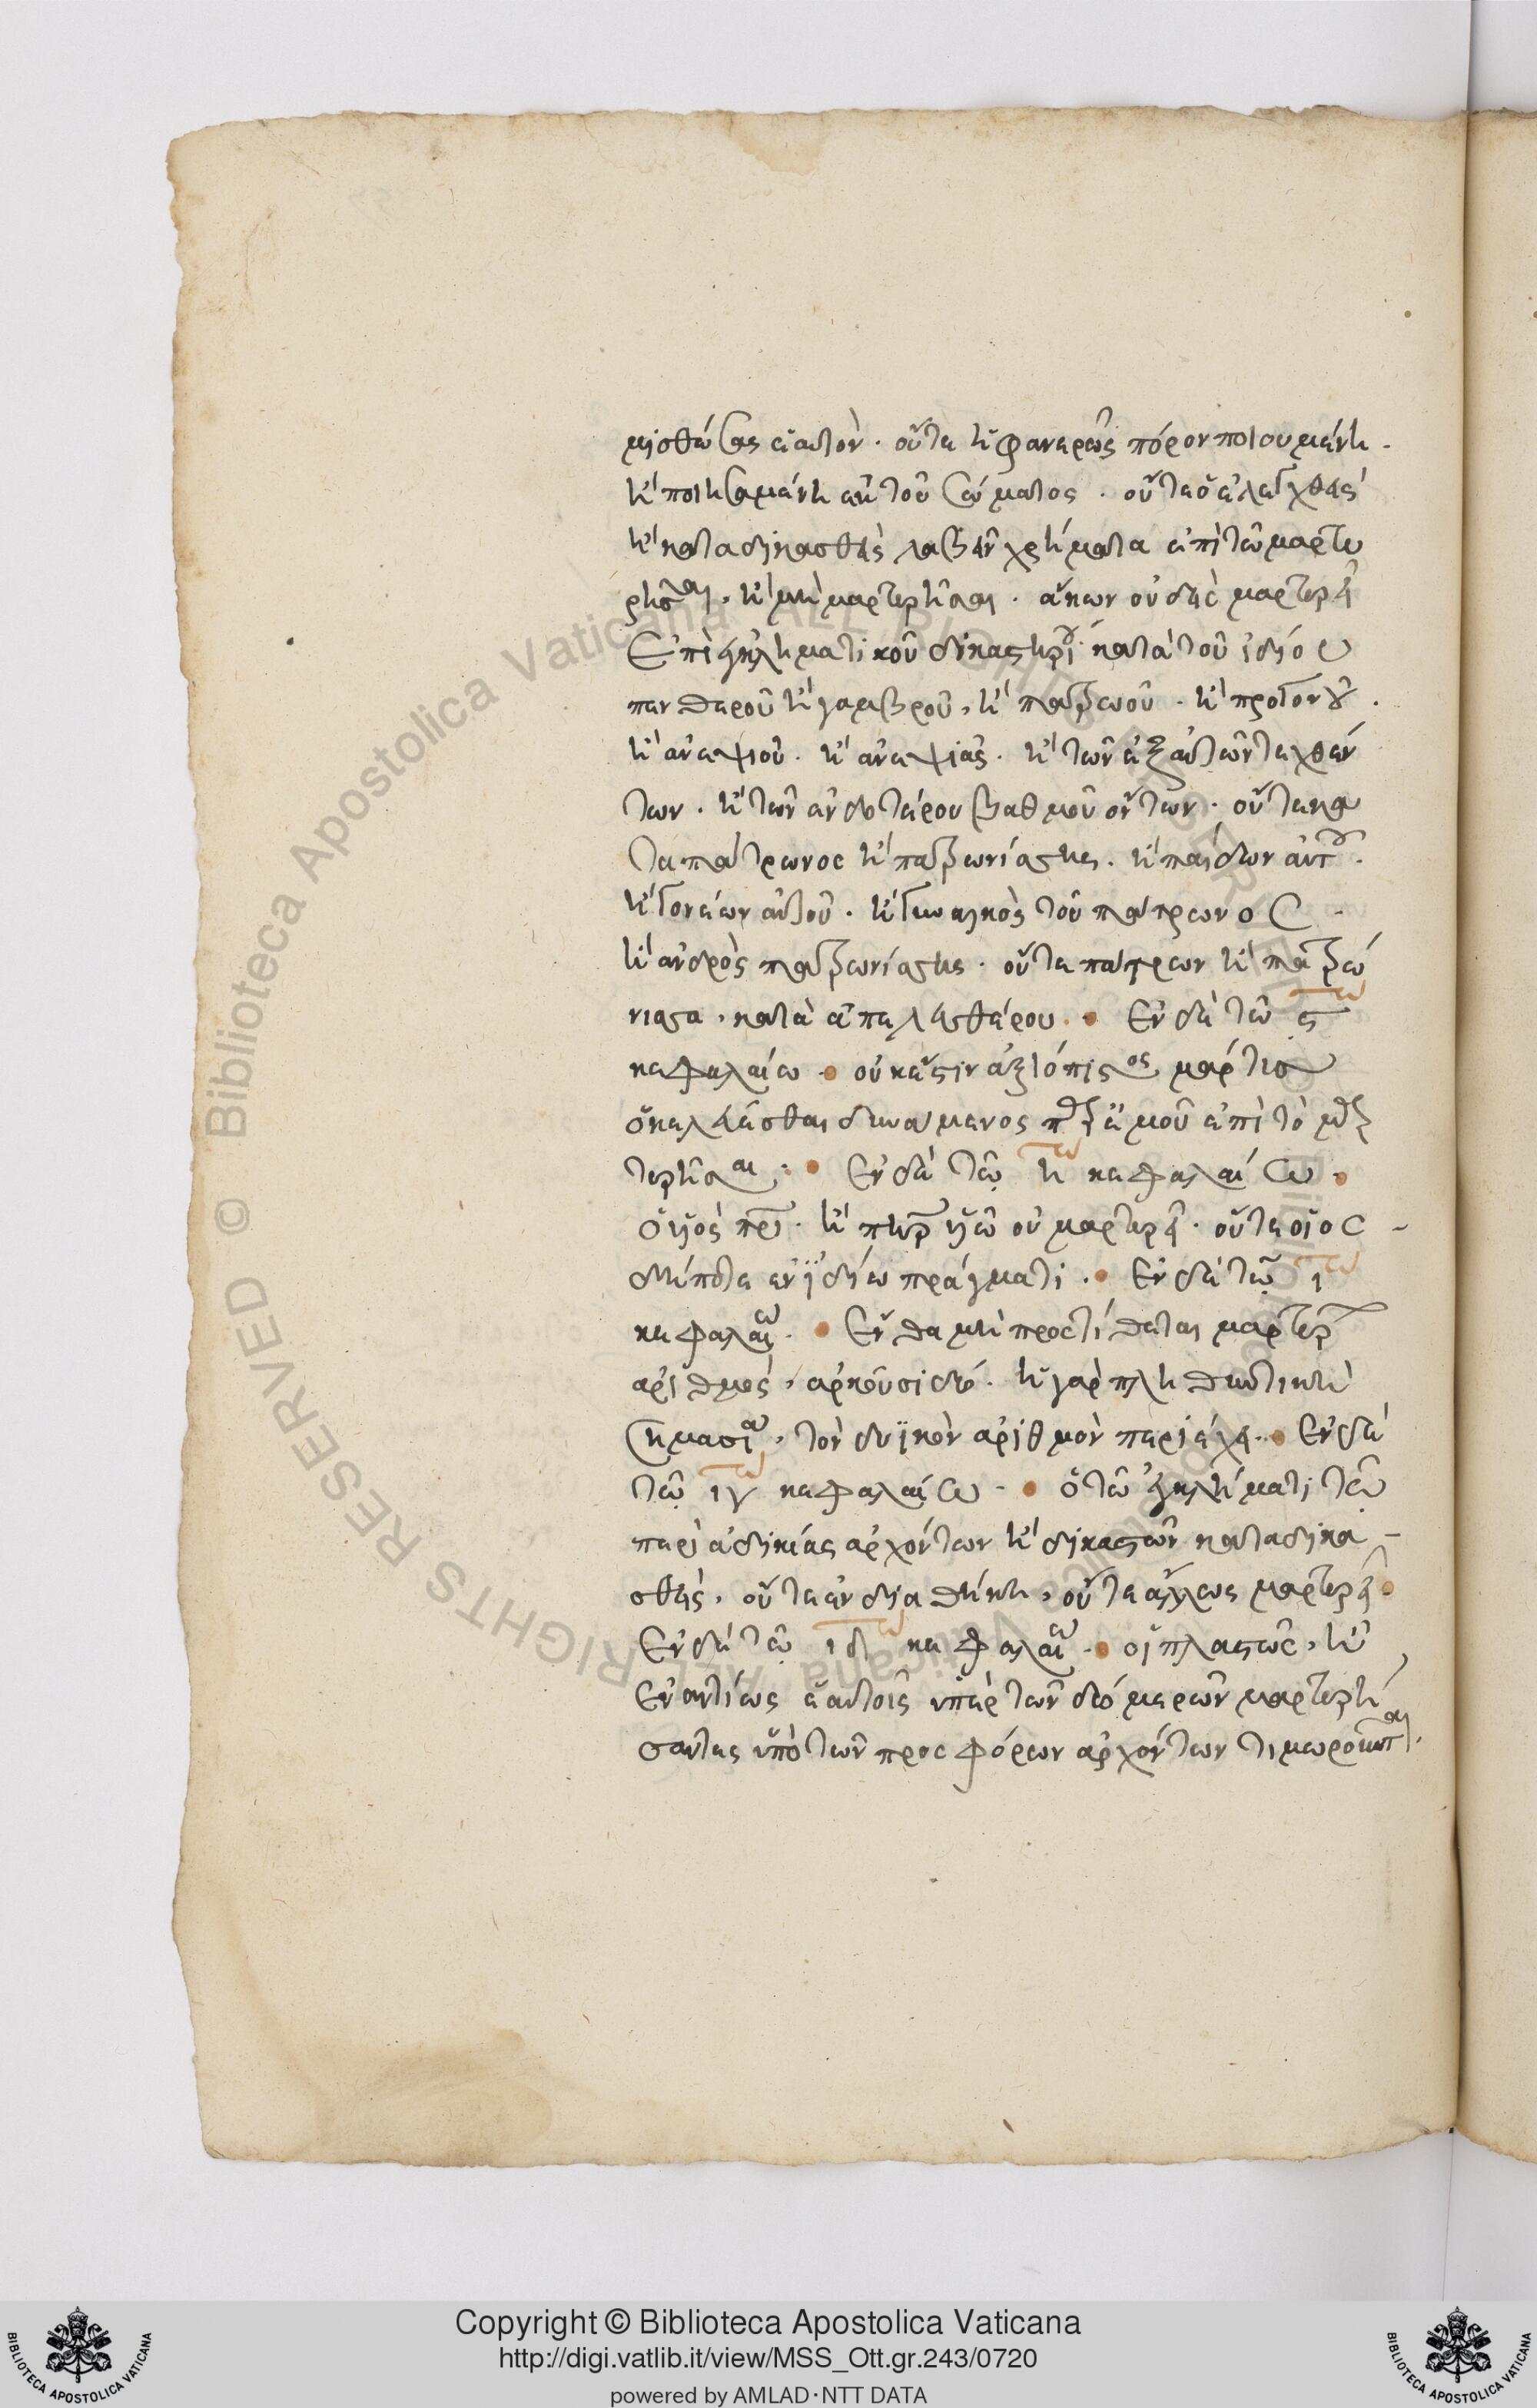 μισθώσας ἑαυτόν. οὔτε ἡ φανερῶς πόρον ποιουμένη.
ἢ ποιησαμένη ἐκ τοῦ σώματος. οὔτε ὁ ἐλεγχθεὶς
ἢ καταδικασθεὶς λαβεῖν χρήματα ἐπὶ τῶ μαρτυ
ρῆσαι, ἢ μὴ μαρτυρῆσαι. ἄκων οὐδεὶς μαρτυρεῖ
Ἐπὶ ἐγκληματικοῦ δικαστηρίου κατὰ τοῦ ἰδίου
πενθεροῦ ἢ γαμβροῦ, ἢ πατρωοῦ. ἢ προγονοῦ.
ἢ ἀνεψιοῦ. ἢ ἀνεψιᾶς. ἢ τῶν ἐξ αὐτῶν τεχθέν
των. ἢ τῶν ἀνωτέρου βαθμοῦ ὄντων. οὔτε κα
τα πάτρωνος ἢ πατρωνίσσης. ἢ παίδων αὐτοῦ.
ἢ γονέων αὐτοῦ. ἢ γυναικὸς τοῦ πάτρωνος
ἢ ἀνδρὸς πατρωνίσσης. οὔτε πάτρων ἢ πατρώ
νισσα, κατὰ ἀπελευθέρου. Ἐν δὲ τῶ ς τω
κεφαλαίω. οὐκ ἔστιν ἀξιόπιστος μάρτυς
ὁ κελεύεσθαι δυνάμενος παρ' ἐμοῦ ἐπὶ τὸ μαρ
τυρῆσαι. Ἐν δὲ τῷ η τω κεφαλαίω.
ὁ υἱὸς πατρὶ. ἢ πατὴρ υἱῶ οὐ μαρτυρεῖ. οὔτε οἷος
δήποτε ἐν ἰδίω πράγματι. Ἐν δὲ τῷ ι τω
κεφαλαίω. Ἔνθα μὴ προστίθεται μαρτύρων
ἀριθμὸς, ἀρκοῦσι δύο. ἡ γὰρ πληθυντικὴ
σημασία, τὸν δυϊκὸν ἀριθμὸν περιέχει. Ἐν δὲ
τῷ ιγ τω κεφαλαίω. ὁ τῶ ἐγκλήματι τῷ
περὶ ἀδικίας ἀρχόντων ἢ δικαστῶν καταδικα
σθεὶς, οὔτε ἐν διαθήκη, οὔτε ἄλλως μαρτυρεῖ.
Ἐν δὲ τῷ ιδ τω κεφαλαίω. οἱ πλαστῶς, ἢ
ἐναντίως ἑαυτοῖς ὑπὲρ τῶν δύο μερῶν μαρτυρή
σαντες ὑπὸ τῶν προσφόρων ἀρχόντων τιμωροῦνται.
Copyright © Biblioteca Apostolica Vaticana
http://digi.vatlib.it/view/MSS_Ott.gr.243/0720
powered by AMLAD·NTT DATA